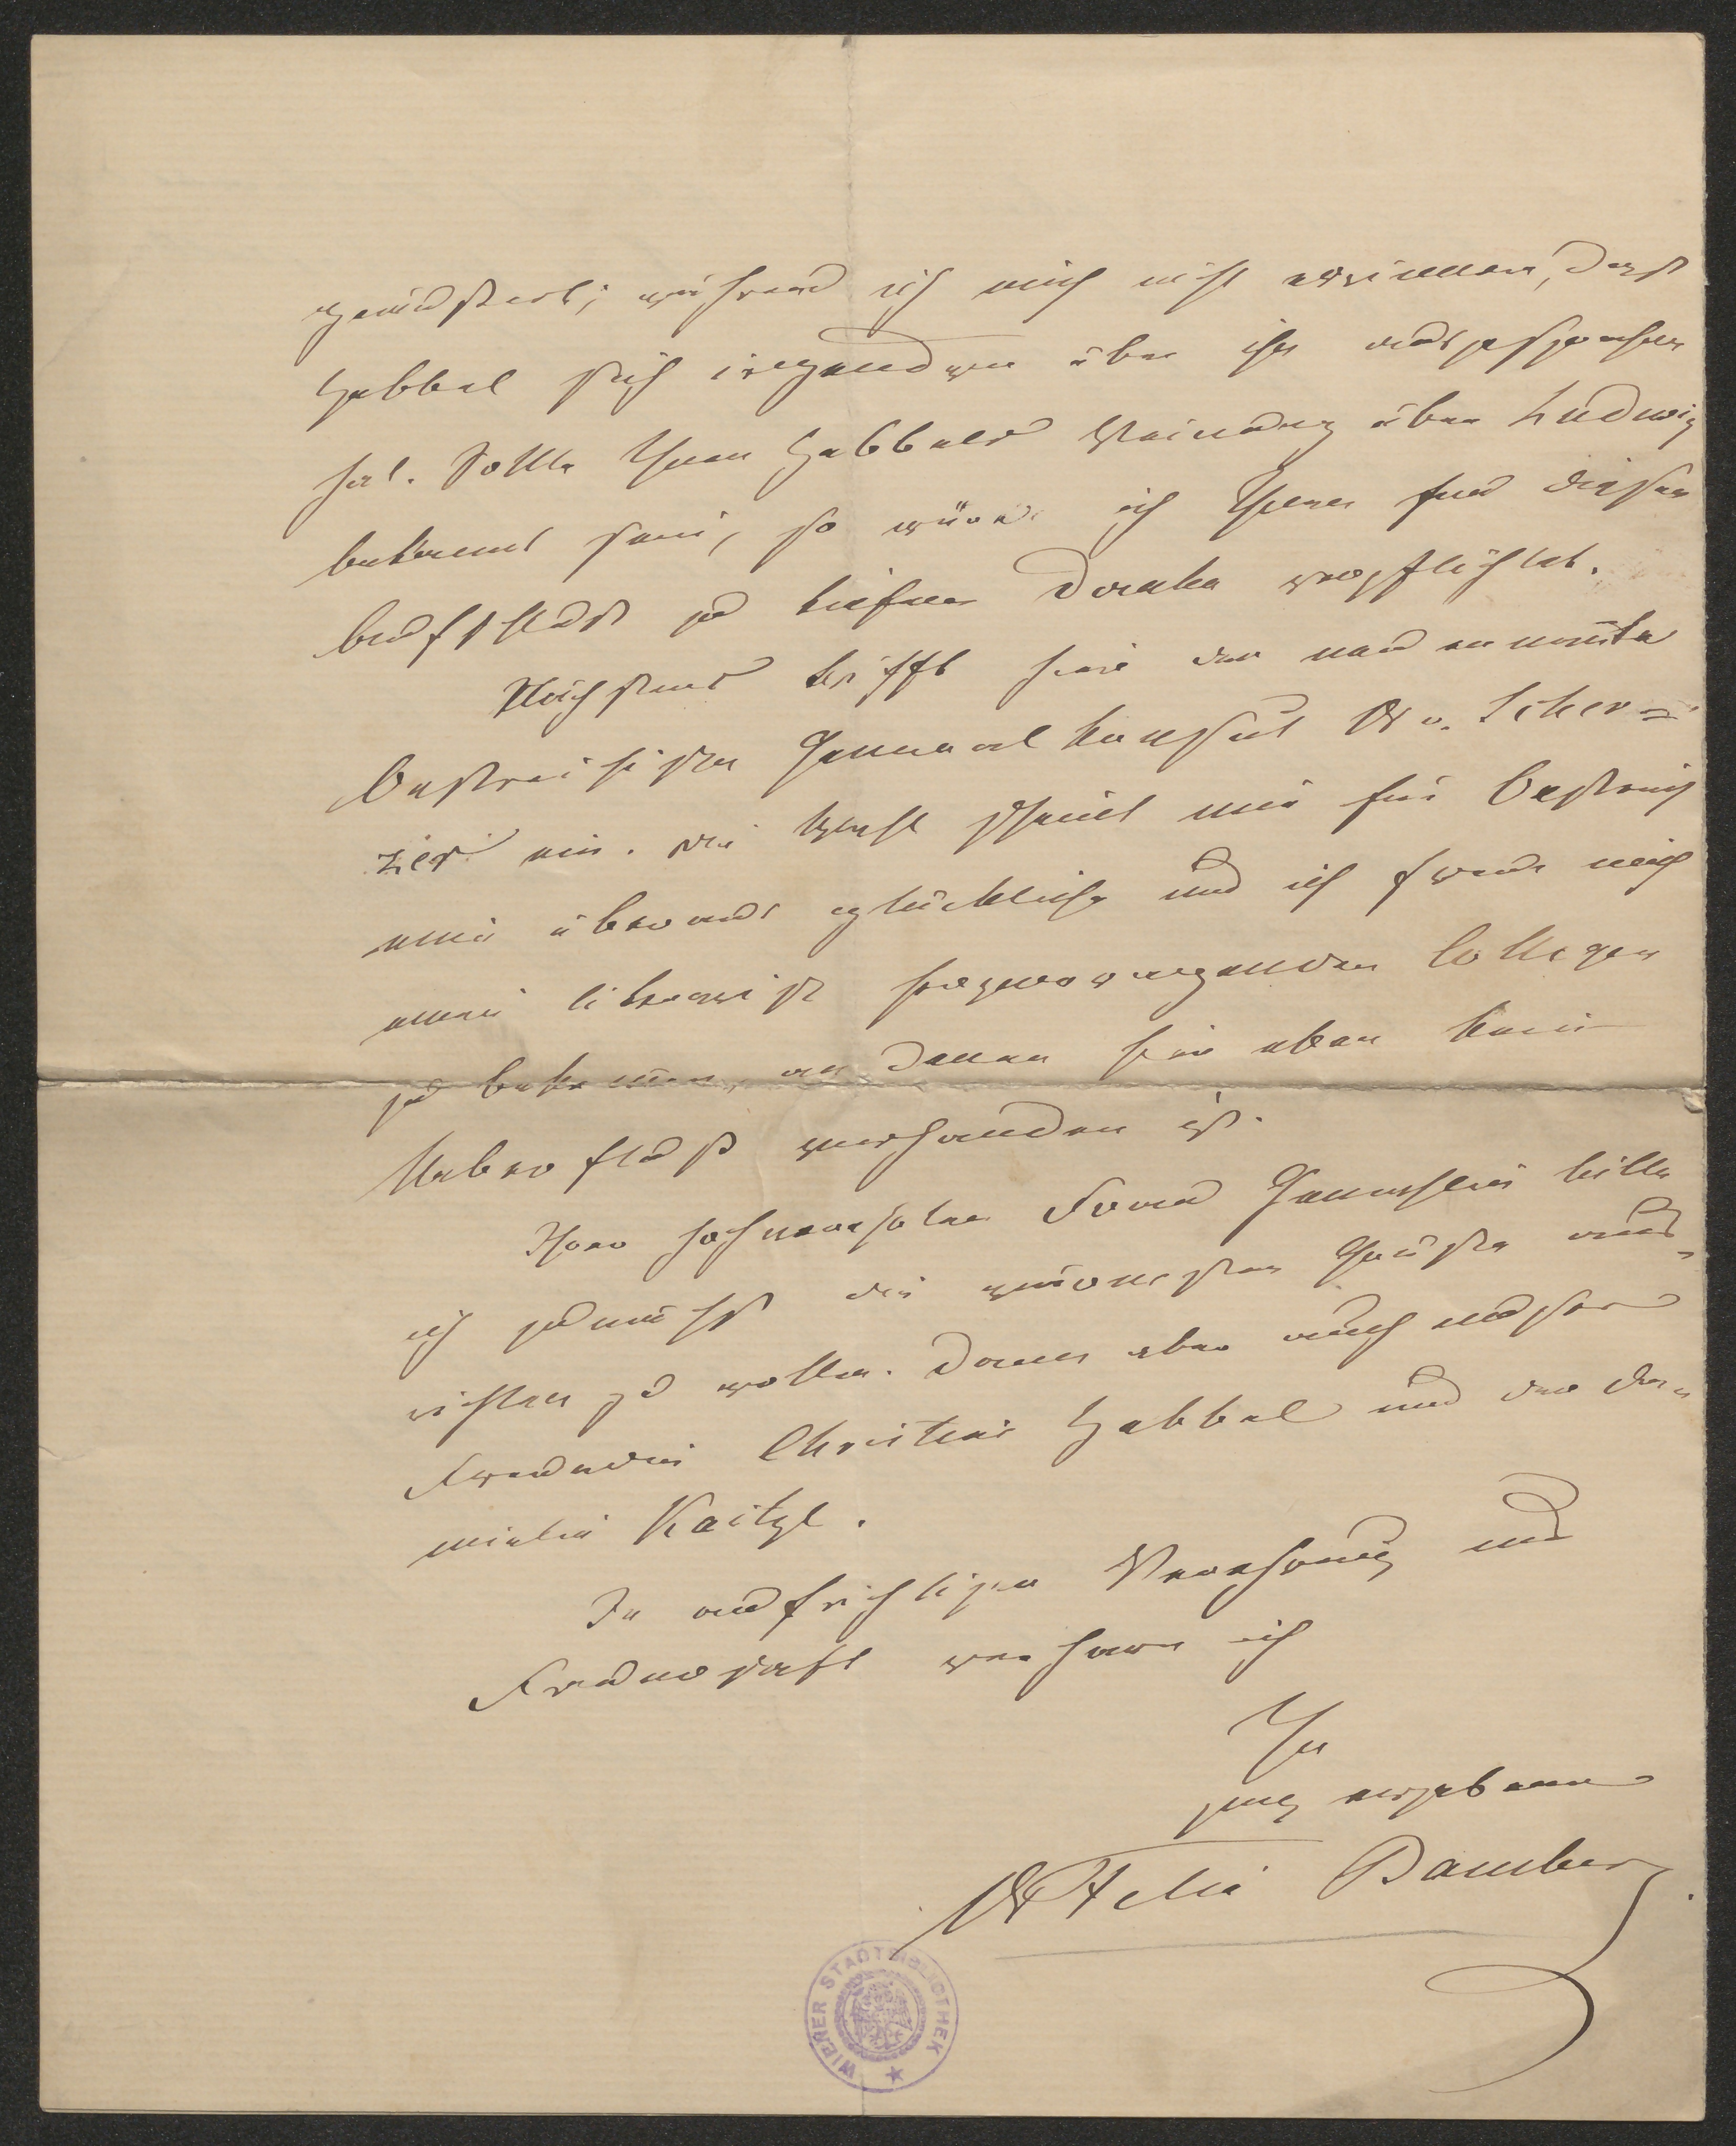 geäußert; während ich mich nicht erinnere, daß
Hebbel sich irgendwie über ihn ausgesprochen
hat. Sollte Ihnen Hebbels Meinung über Ludwig
bekannt sein, so würde ich Ihnen für diesen
zu tiefem Danke verpflichtet.
Nächstens trifft hier der neu ernannte
Oestreichische Generalkonsul Dr v. Scher=
zer ein. Die Wahl scheint mir für Oestreich
eine überaus glückliche und ich freue mich
einen literarisch hervorragenden Collegen
zu bekommen, an denen hier eben kein
Ueberfluß vorhanden ist.
Ihrer hochverehrten Frau Gemahlin bitte
ich zunächst die wärmsten Grüße aus=
richten zu wollen. Dann aber auch unsrer
Freundin Christine Hebbel und der Fa=
milie Kaitzl.
In aufrichtiger Verehrung und
Freundschaft verharre ich
Ihr
ganz ergebener
Dr Felix Bamberg.
WIENER STADTBIBLIOTHEK